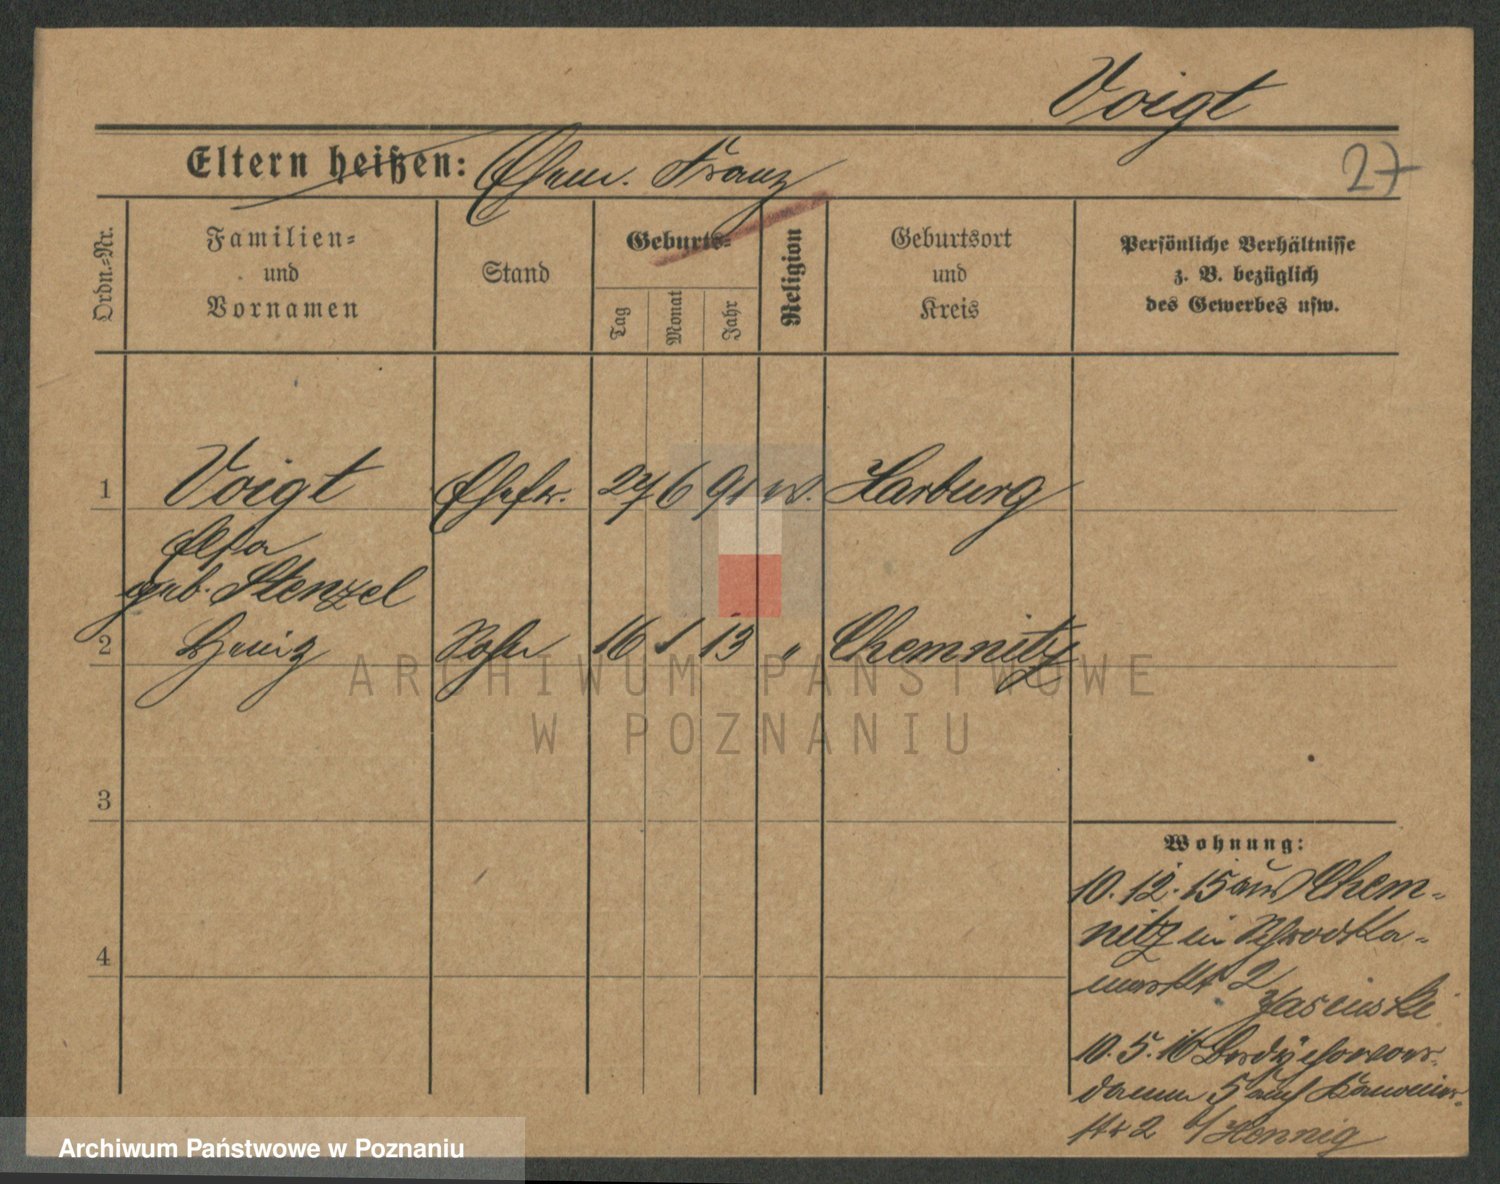 Voigt
27
Eltern heißen: Ehem. Franz
Ordn.-Nr.
Familien-
und
Vornamen
Stand
Geburts-
Tag
Monat
Jahr
Religion
Geburtsort
und
Kreis
Persönliche Verhältnisse
z. B. bezüglich
des Gewerbes usw.
1 Voigt Ehefr. 27 6 91 ev. Harburg
Elsa
geb. Stenzel
2 Heinz Sohn 16 1 13 " Chemnitz
3
4
Wohnung:
10.12.15 aus Chem-
nitz in Schrodka-
markt 2
Jasinski
10.5.16
damm 5 auf
str 2 b/ Hennig
ARCHIWUM PAŃSTWOWE
W POZNANIU
Archiwum Państwowe w Poznaniu